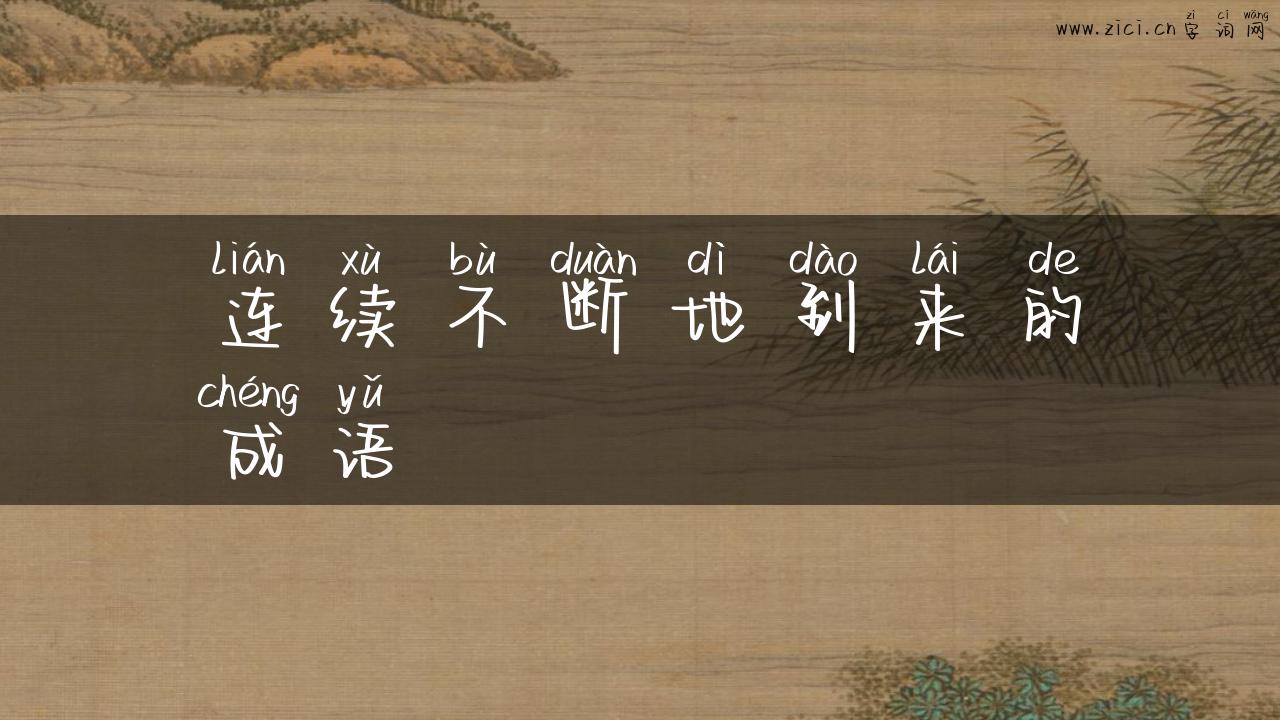 zì cí wǎng
www.zici.cn 字词网
lián xù bù duàn dì dào lái de
连续不断地到来的
chéng yǔ
成语